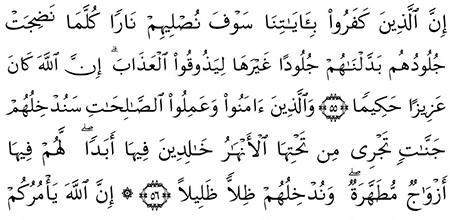 إِنَّ ٱلَّذِينَ كَفَرُوا۟ بِـَٔايَـٰتِنَا سَوْفَ نُصْلِيهِمْ نَارًا كُلَّمَا نَضِجَتْ
جُلُودُهُم بَدَّلْنَـٰهُمْ جُلُودًا غَيْرَهَا لِيَذُوقُوا۟ ٱلْعَذَابَ ۗ إِنَّ ٱللَّهَ كَانَ
عَزِيزًا حَكِيمًا ﴿٥٥﴾ وَٱلَّذِينَ ءَامَنُوا۟ وَعَمِلُوا۟ ٱلصَّـٰلِحَـٰتِ سَنُدْخِلُهُمْ
جَنَّـٰتٍ تَجْرِى مِن تَحْتِهَا ٱلْأَنْهَـٰرُ خَـٰلِدِينَ فِيهَآ أَبَدًا ۖ لَّهُمْ فِيهَآ
أَزْوَٰجٌ مُّطَهَّرَةٌ ۖ وَنُدْخِلُهُمْ ظِلًّا ظَلِيلًا ﴿٥٦﴾ ۞ إِنَّ ٱللَّهَ يَأْمُرُكُمْ